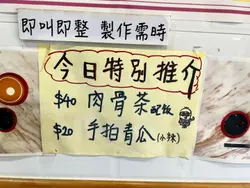 即叫即整 製作需時
今日特別推介
$40 肉骨茶配飯
$20 手拍青瓜(小辣)